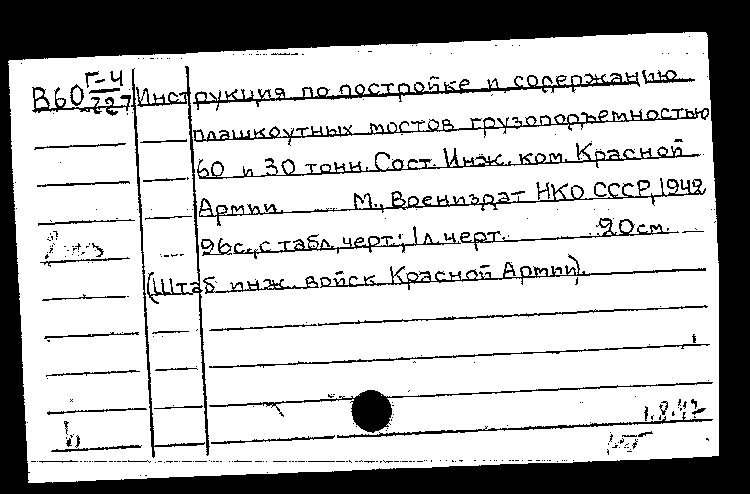 В60 Г-4/727 Инструкция по постройке и содержанию
плашкоутных мостов грузоподъемностью
60 и 30 тонн. Сост. Инж. ком. Красной
Армии. М., Воениздат НКО СССР, 1942
96с., с табл., черт.; 1 л. черт. 20см.
(Штаб инж. войск Красной Армии).
1.8.47